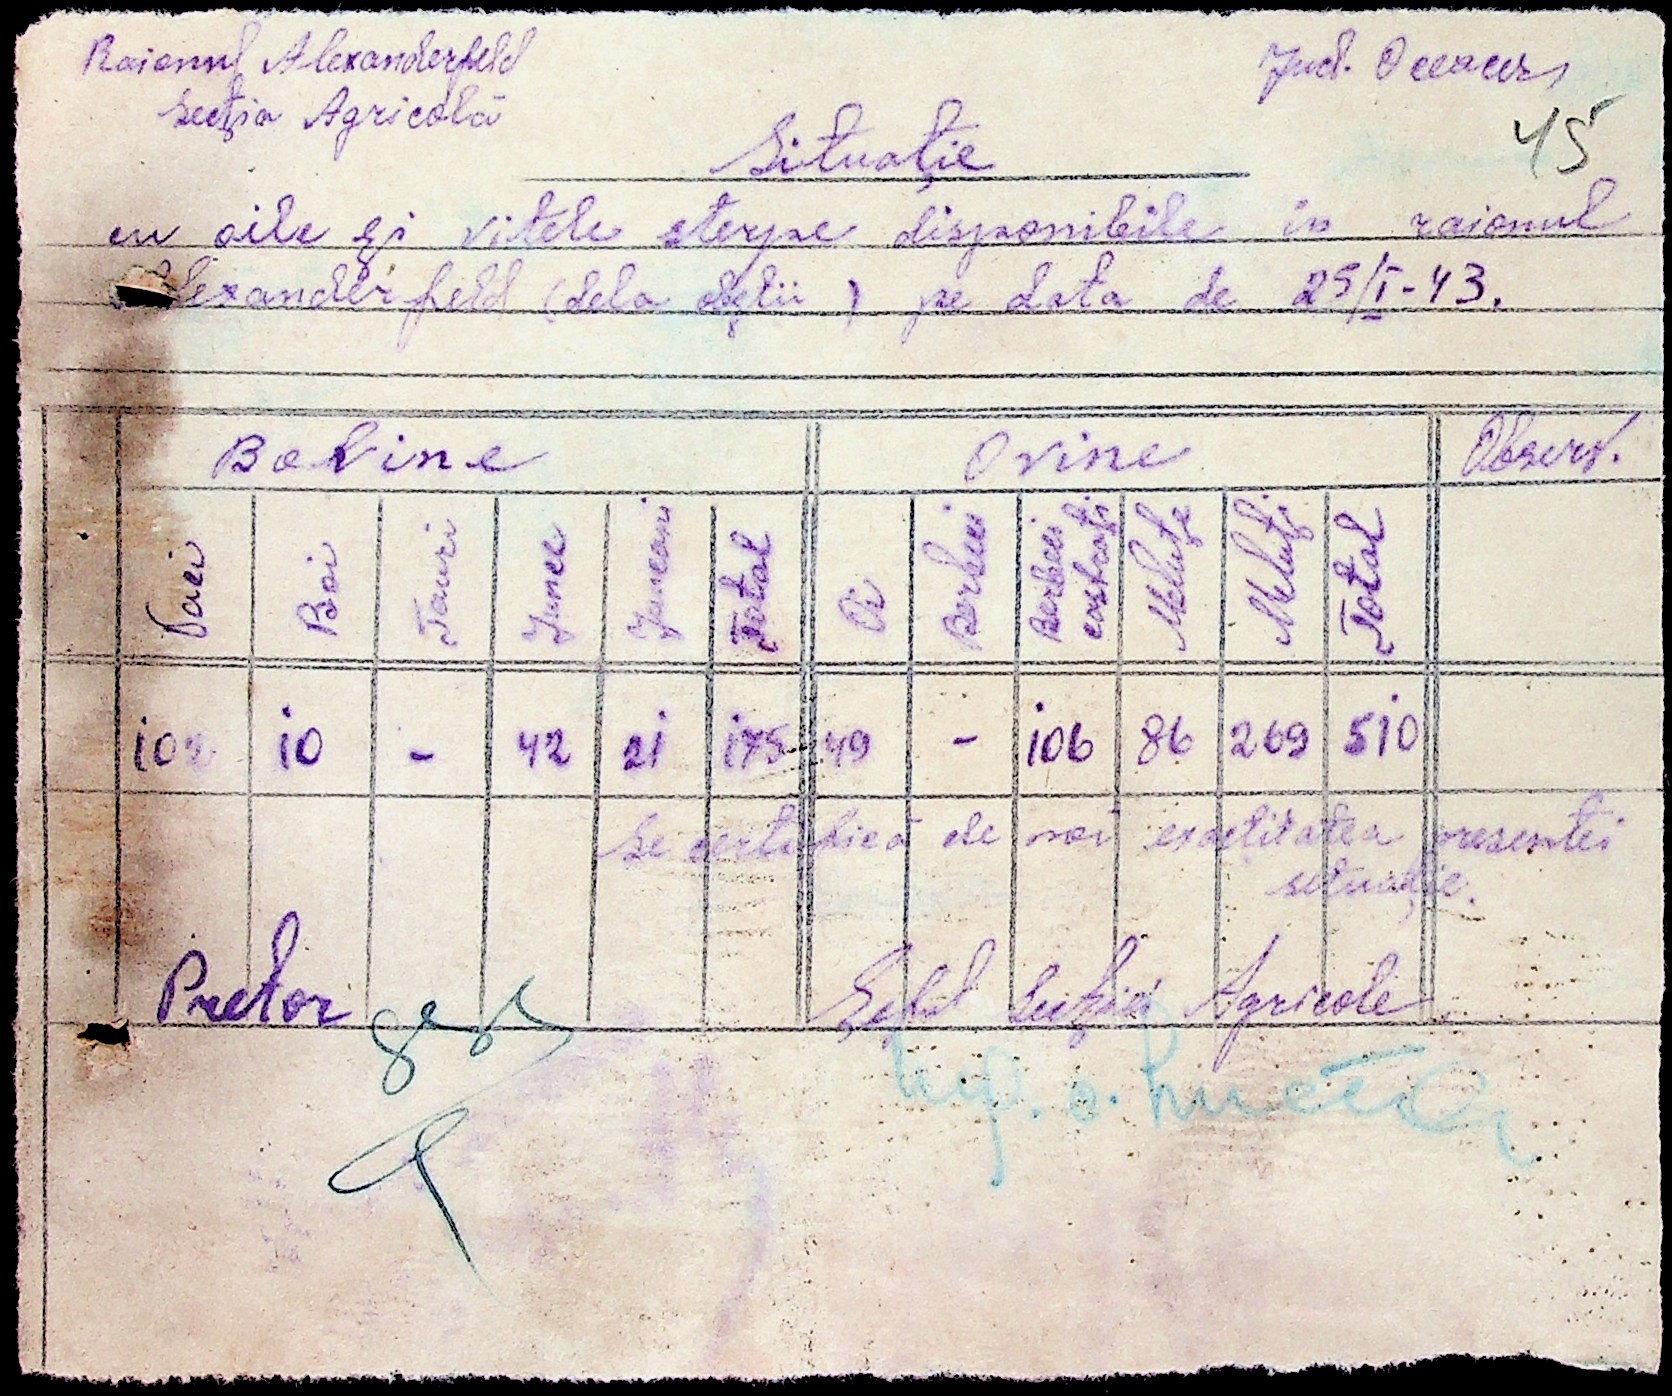 Raionul Alexanderfeld
Secția Agricolă
Jud. Oceacov
45
Situație
cu oile și vitele sterpe disponibile in raionul
Alexanderfeld (dela obștii) pe data de 25/I-43.
Bovine Ovine Observ.
Vaci Boi Tauri Junci Juncani Total Oi Berbeci Berbeci castrați Meluțe Meluți Total
102 10 - 42 21 175 49 - 106 86 269 510
Se certifică de noi exactitatea prezentei
situație.
Pretor Șeful Secției Agricole